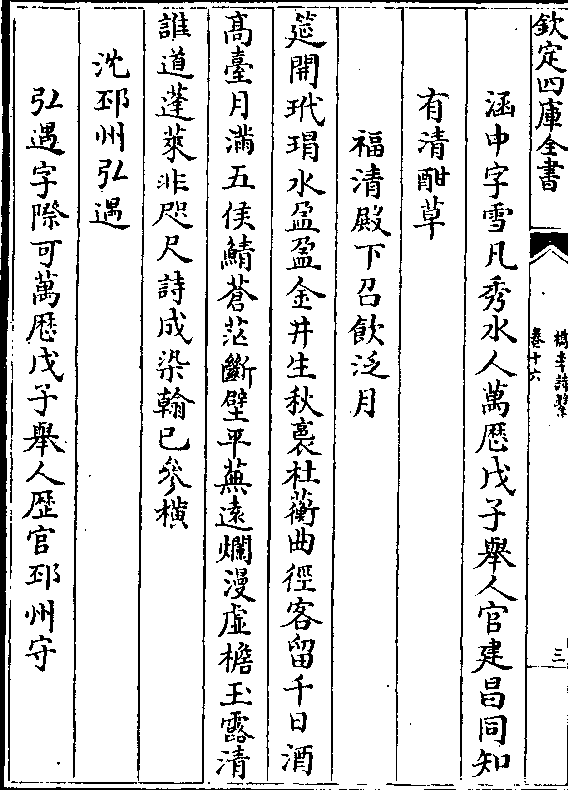 欽定四庫全書
檇李詩繫
卷十六
三
涵中字雪凡秀水人萬歷戊子舉人官建昌同知
有清酣草
福清殿下召飲泛月
筵開玳瑁水盈盈金井生秋裛杜蘅曲徑客留千日酒
高臺月滿五侯鯖蒼茫斷壁平蕪遠爛漫虛檐玉露清
誰道蓬萊非咫尺詩成染翰已參橫
沈邳州弘遇
弘遇字際可萬歷戊子舉人歷官邳州守